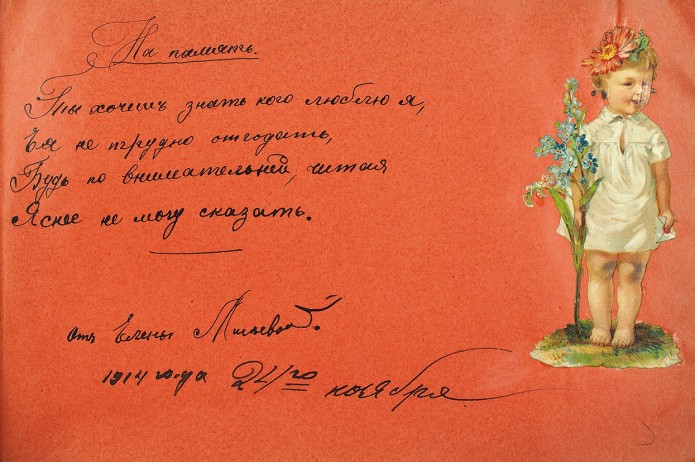 На память.
Ты хочешь знать кого люблю я,
Ея не трудно отгодать,
Будь по внимательней, читая
Яснее не могу сказать.
отъ Елены
1914 года 24го ноября